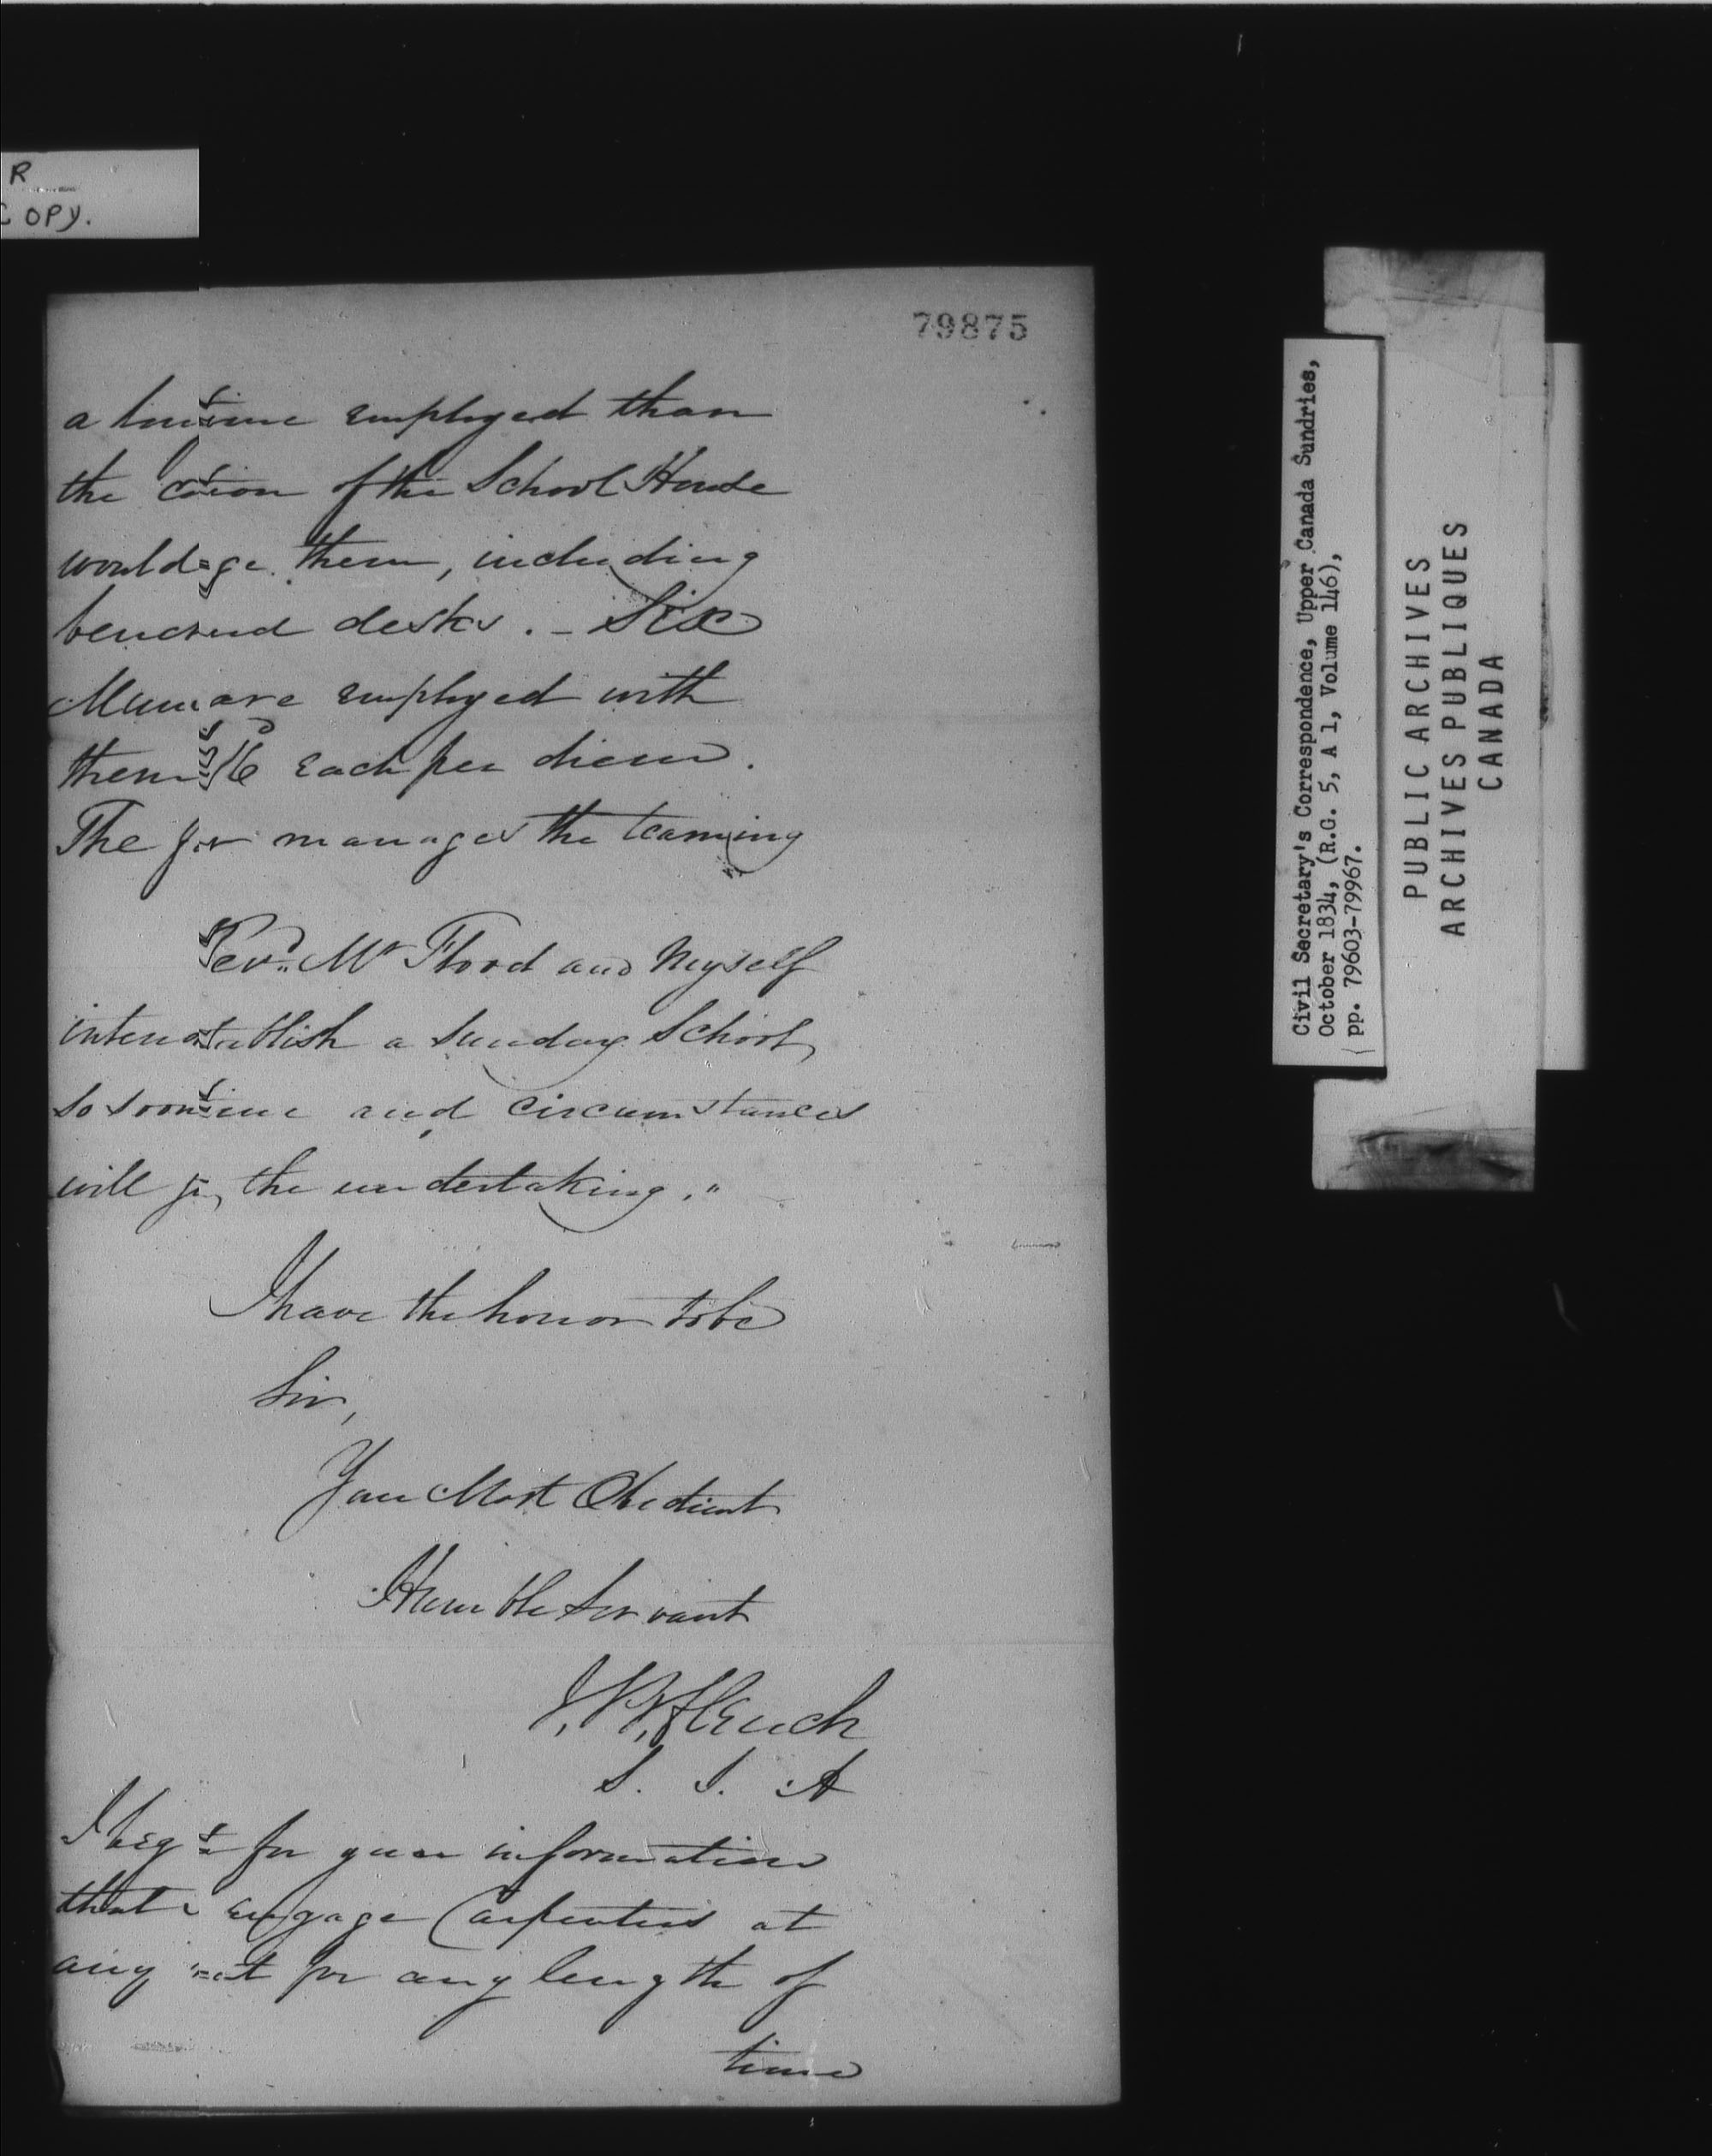 R
COPY.
79875
a employed than
the of the School House
would them, including
desks. - Six
are employed with
them each per diem.
The manages the teaming
Revd. Mr Flood and Myself
a Sunday School,
so soon and circumstances
will the undertaking."
I have the honor to be
Sir,
Your Most Obedient
Humble Servant
J. B. Clench
S. I. A
I beg for your information
that engage Carpenters at
any for any length of
time
Civil Secretary's Correspondence, Upper Canada Sundries,
October 1834, (R.G. 5, A 1, Volume 146),
pp. 79603-79967.
PUBLIC ARCHIVES
ARCHIVES PUBLIQUES
CANADA